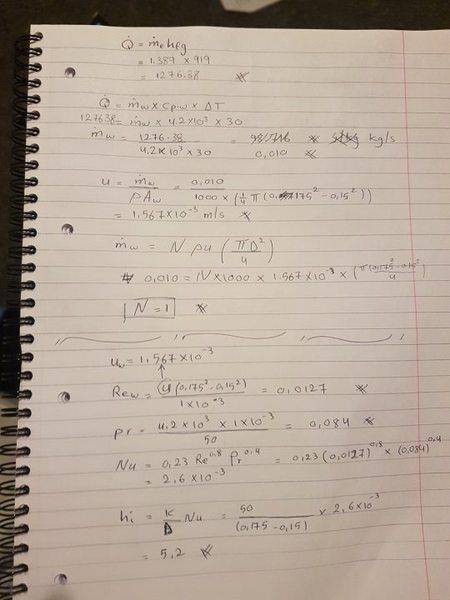 Q̇ = ṁe hfg
= 1.387 × 919
= 1276.38
Q̇ = ṁw × Cpw × ΔT
1276.38 = ṁw × 4.2×10³ × 30
ṁw = 1276.38 / 4.2×10³ × 30 = 0,010 kg/s
u = ṁw / ρAw = 0,010 / 1000 × (1/4 π (0.175² - 0,15²))
= 1.567×10⁻³ m/s
ṁw = N ρu (πD²/4)
0,010 = N×1000 × 1.567×10⁻³ × (π(0,175² - 0.15²)/4)
N = 1
uw = 1,567×10⁻³
Rew = u(0,175² - 0,15²) / 1×10⁻³ = 0,0127
Pr = 4.2×10³ × 1×10⁻³ / 50 = 0,084
Nu = 0,23 Re^0,8 Pr^0,4 = 0,23 (0,0127)^0,8 × (0,084)^0,4
= 2,6×10⁻³
hi = K/D Nu = 50 / (0,175 - 0,15) × 2,6×10⁻³
= 5,2